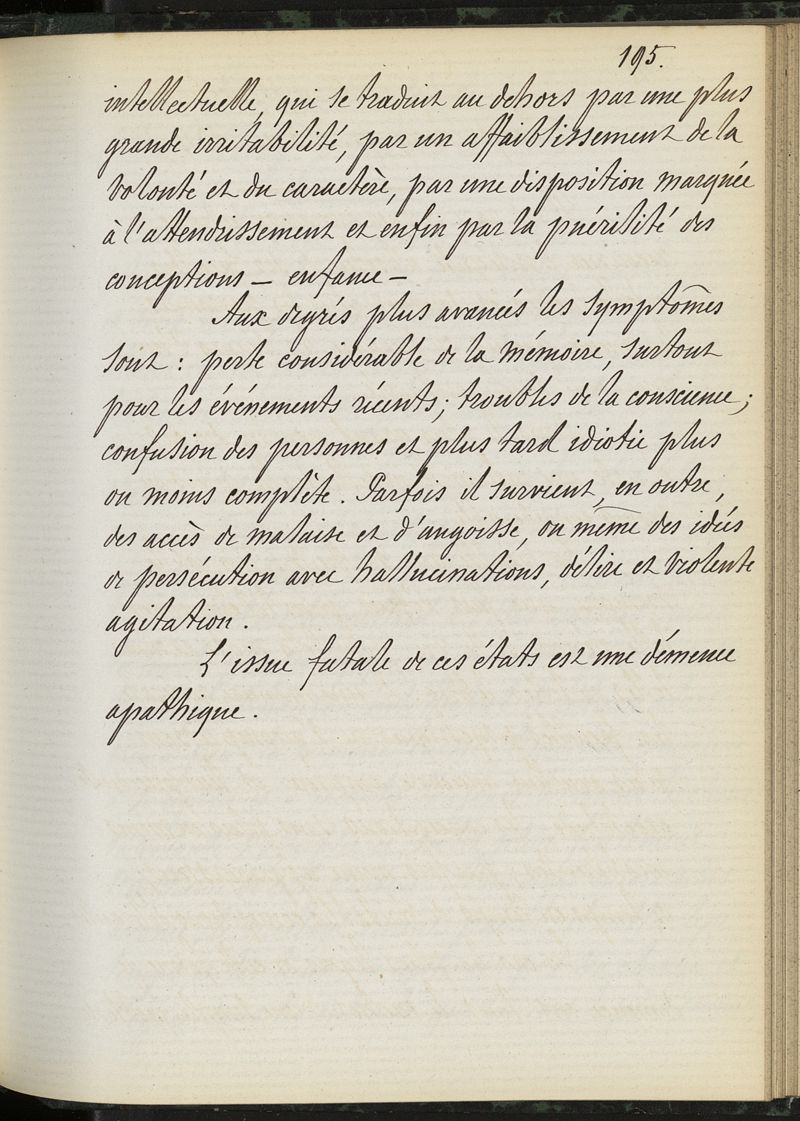 195.
intellectuelle, qui se traduit au dehors par une plus
grande irritabilité, par un affaiblissement de la
volonté et du caractère, par une disposition marquée
à l'attendrissement et enfin par la puérilité des
conceptions — enfance —
Aux degrés plus avancés les symptômes
sont : perte considérable de la mémoire, surtout
pour les événements récents ; troubles de la conscience ;
confusion des personnes et plus tard idiotie plus
ou moins complète. Parfois il survient, en outre,
des accès de malaise et d'angoisse, ou même des idées
de persécution avec hallucinations, délire et violente
agitation.
L'issue fatale de ces états est une démence
apathique.